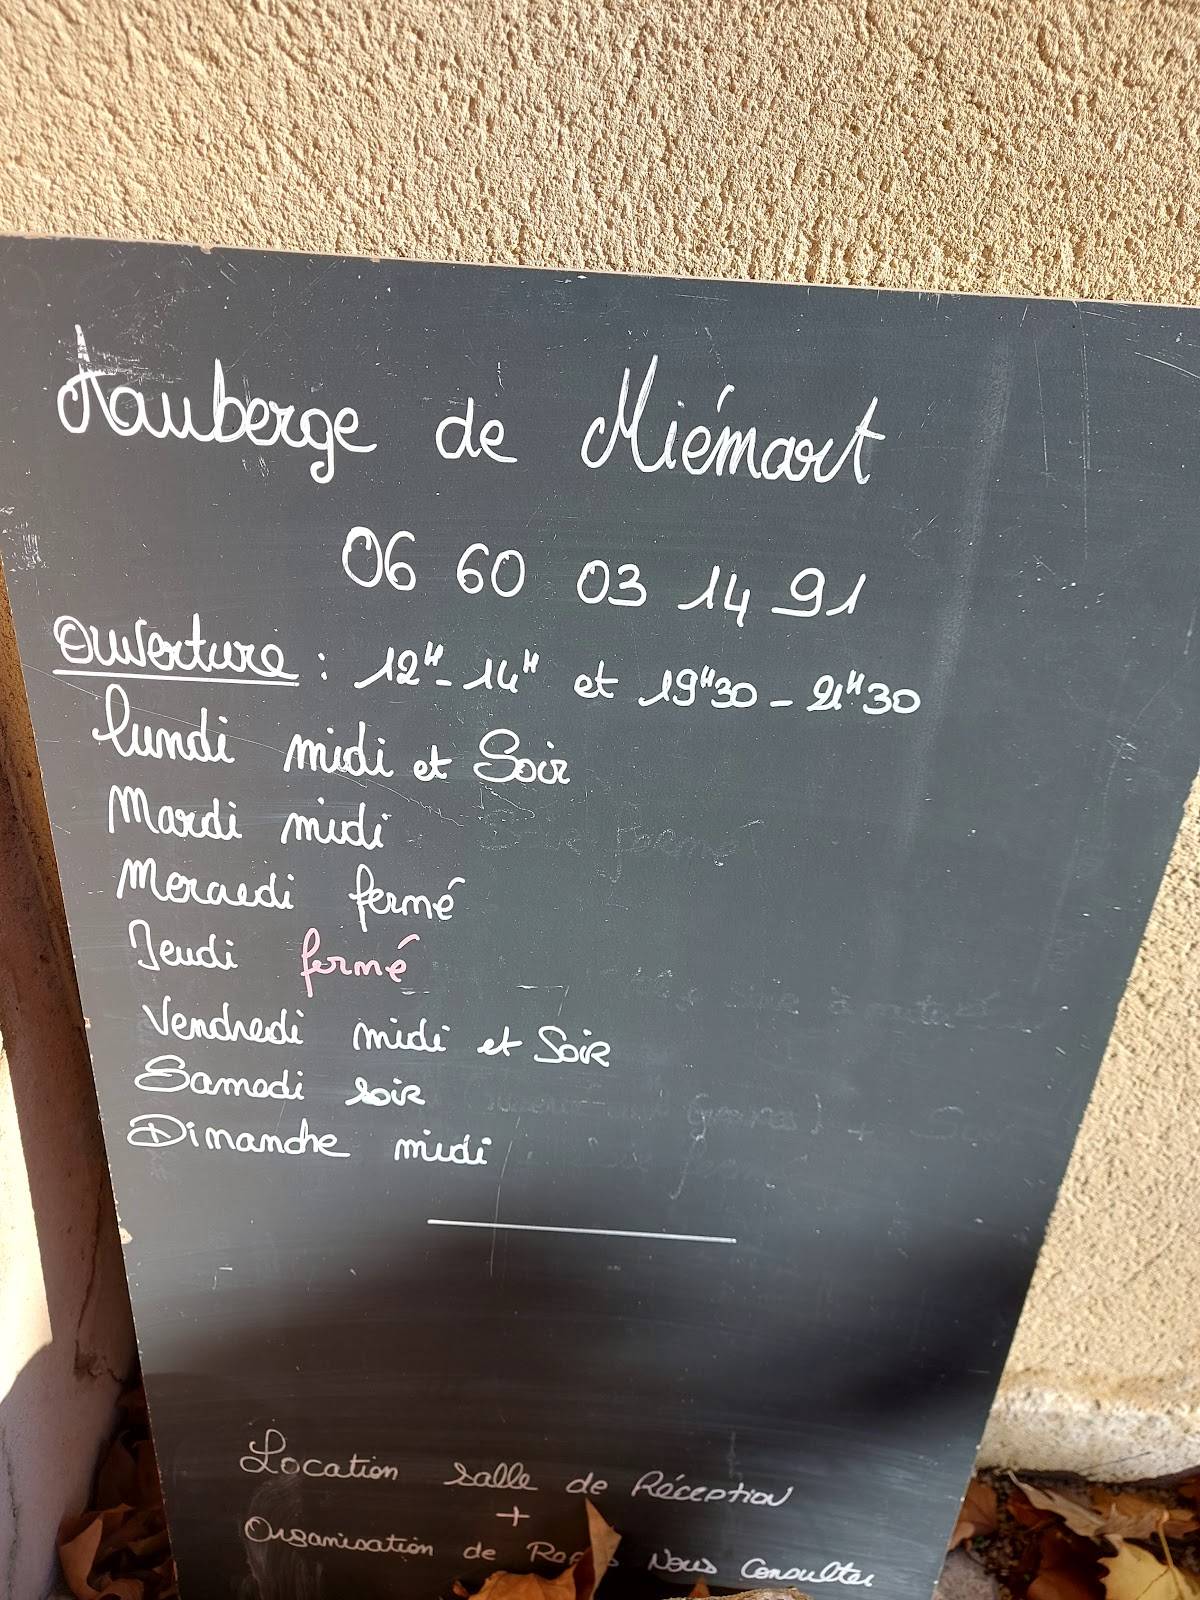 Auberge de Miémart
06 60 03 14 91
Ouverture : 12H - 14H et 19H30 - 21H30
lundi midi et Soir
Mardi midi
Mercredi fermé
Jeudi fermé
Vendredi midi et Soir
Samedi soir
Dimanche midi
Location salle de Réception
+
Organisation de Nous Consulter